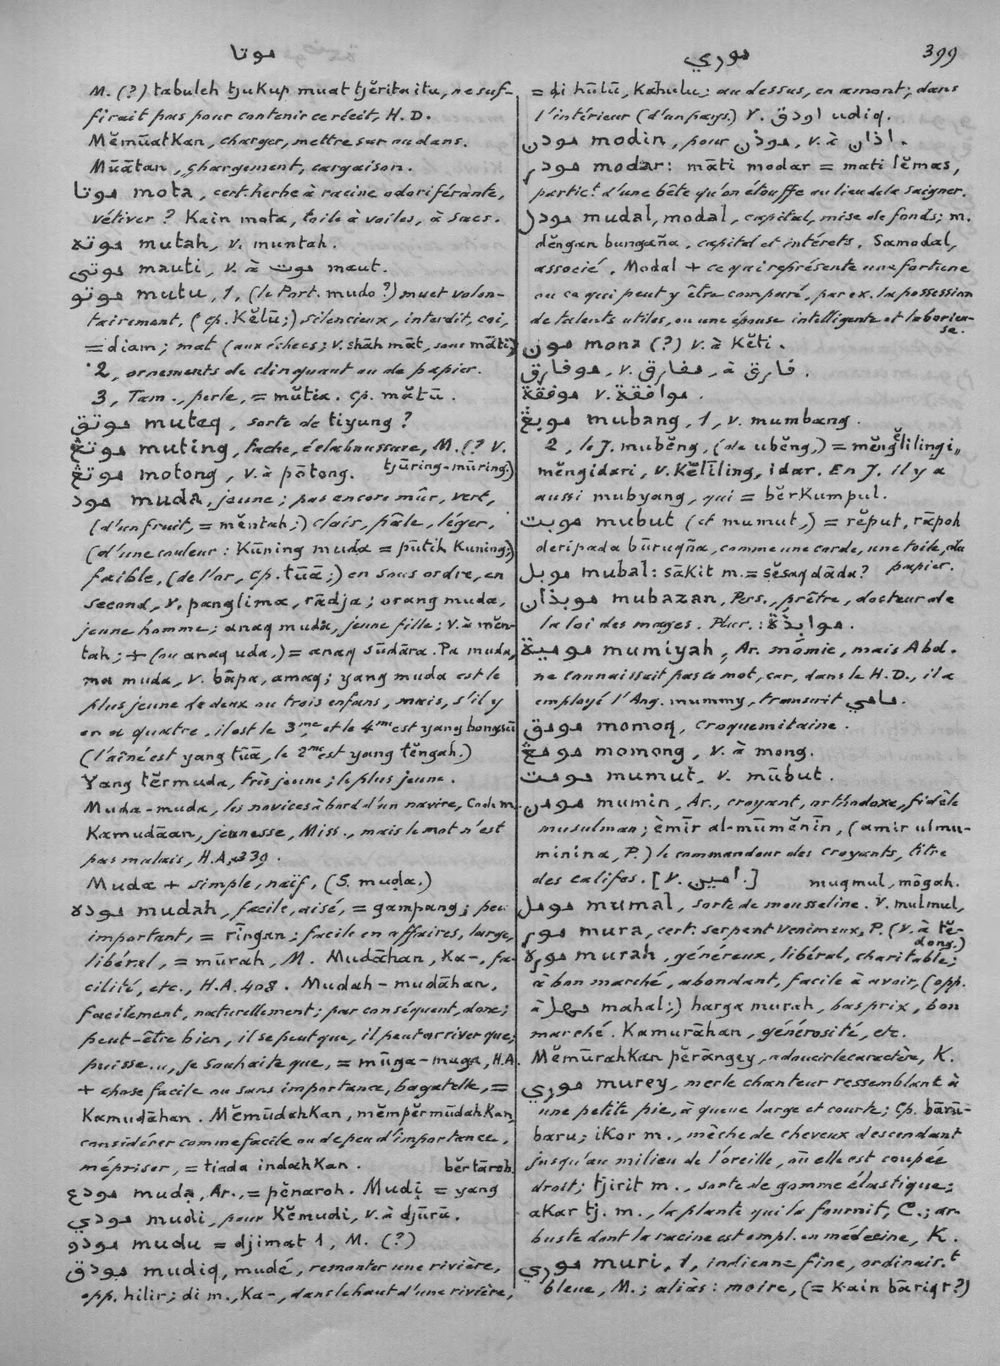 موتا
موري
399
M. (?) tabuleh tjukup muat tjĕrita itu, ne suf-
firait pas pour contenir ce récit, H. D.
Mĕmūatkan, charger, mettre sur ou dans.
Mūātan, chargement, cargaison.
موتا mota, cert. herbe à racine odoriférante,
vétiver? Kain mota, toile à voiles, à sacs.
موته mutah, v. muntah.
موتي mauti, v. à موت maut.
موتو mutu, 1, (le Port. mudo?) muet volon-
tairement, (cp. Kĕlū;) silencieux, interdit, coi,
= diam; mat (aux échecs; v. shāh māt, sous māti)
2, ornements de clinquant ou de papier.
3, Tam., perle, = mŭtia. Cp. mătū.
موتق muteq, sorte de tiyung?
موتڠ muting, tache, éclaboussure, M. (? v.
tjūring-mūring.)
موتڠ motong, v. à pōtong.
مود muda, jeune; pas encore mûr, vert,
(d'un fruit, = mĕntah;) clair, pâle, léger,
(d'une couleur: Kūning muda = pūtih kuning;)
faible, (de l'or, cp. tūā;) en sous ordre, en
second, v. panglima, rādja; orang muda,
jeune homme; anaq muda, jeune fille; v. à mĕn-
tah; + (ou anaq uda,) = anaq sūdāra. Pa muda,
ma muda, v. bāpa, amaq; yang muda est le
plus jeune de deux ou trois enfans, mais, s'il y
en a quatre, il est le 3me et le 4me est yang bongsū
(l'aîné est yang tūā, le 2me est yang tĕngah.)
Yang tĕrmuda, très jeune; le plus jeune.
Muda-muda, les novices à bord d'un navire, Code m.
Kamudāan, jeunesse, Miss., mais le mot n'est
pas malais, H.A. 339.
Muda + simple, naïf, (S. muḍa.)
موده mudah, facile, aisé, = gampang; peu
important, = rīngan; facile en affaires, large,
libéral, = mūrah, M. Mudāhan, Ka-, fa-
cilité, etc., H.A. 408. Mudah-mudāhan,
facilement, naturellement; par conséquent, donc;
peut-être bien, il se peut que, il peut arriver que;
puisse.., je souhaite que, = mūga-muga, H.A.
+ chose facile ou sans importance, bagatelle, =
Kamudāhan. Mĕmūdahkan, mĕmpĕrmūdahkan,
considérer comme facile ou de peu d'importance,
mépriser, = tiada indahkan. bĕrtāroh.
مودع muda, Ar., = pĕnaroh. Mudi = yang
مودي mudi, pour Kĕmudi, v. à djūrū.
مودو mudu = djimat 1, M. (?)
مودق mudiq, mudé, remonter une rivière,
opp. hilir; di m., Ka-, dans le haut d'une rivière,
= di hūlū, Kahulu; au dessus, en amont; dans
l'intérieur (d'un pays.) V. اودق udiq.
مودن modin, pour موذن, v. à اذان.
مودر modar: māti modar = mati lĕmas,
partict d'une bête qu'on étouffe au lieu de la saigner.
مودل mudal, modal, capital, mise de fonds; m.
dĕngan bungaña, capital et intérêts. Samodal,
associé. Modal + ce qui représente une fortune
ou ce qui peut y être comparé, par ex. la possession
de talents utiles, ou une épouse intelligente et laborieu-
se.
مون mona (?) v. à Kĕti.
موفارق, v. مفارق, à فارق.
موفقة v. موافقة.
موبڠ mubang, 1, v. mumbang.
2, le J. mubĕng, (de ubĕng,) = mĕngĕlilingi,
mĕngidari, v. Kĕlīling, idar. En J. il y a
aussi mubyang, qui = bĕrkumpul.
موبت mubut (et mumut,) = rĕput, rāpoh
deripada būruqña, comme une corde, une toile, du
papier.
موبل mubal: sākit m. = sĕsaq dāda?
موبذان mubazan, Pers., prêtre, docteur de
la loi des mages. Plur.: موابذة.
مومية mumiyah, Ar. mómie, mais Abd.
ne connaissait pas ce mot, car, dans le H.D., il a
employé l'Ang. mummy, transcrit مامي.
مومق momoq, croquemitaine.
مومڠ momong, v. à mong.
مومت mumut, v. mūbut.
مومن mumin, Ar., croyant, orthodoxe, fidèle
musulman; èmīr al-mūmĕnīn, (amir ulmu-
minina, P.) le commandeur des croyants, titre
des califes. [V. امين.] muqmul, mōgah.
مومل mumal, sorte de mousseline. V. mulmul,
مور mura, cert. serpent venimeux, P. (v. à tĕ-
dong.)
موره murah, généreux, libéral, charitable;
à bon marché, abondant, facile à avoir, (opp.
à مهل mahal;) harga murah, bas prix, bon
marché. Kamurāhan, générosité, etc.
Mĕmūrahkan pĕrāngey, adoucir le caractère, K.
موري murey, merle chanteur ressemblant à
une petite pie, à queue large et courte; Cp. bārū-
baru; ikor m., mèche de cheveux descendant
jusqu'au milieu de l'oreille, où elle est coupée
droit; tjirit m., sorte de gomme élastique;
akar tj. m., la plante qui la fournit, C.; ar-
buste dont la racine est empl. en médecine, K.
موري muri, 1, indienne fine, ordinair.t
bleue, M.; aliàs: moire, (= kain bāriqr?)